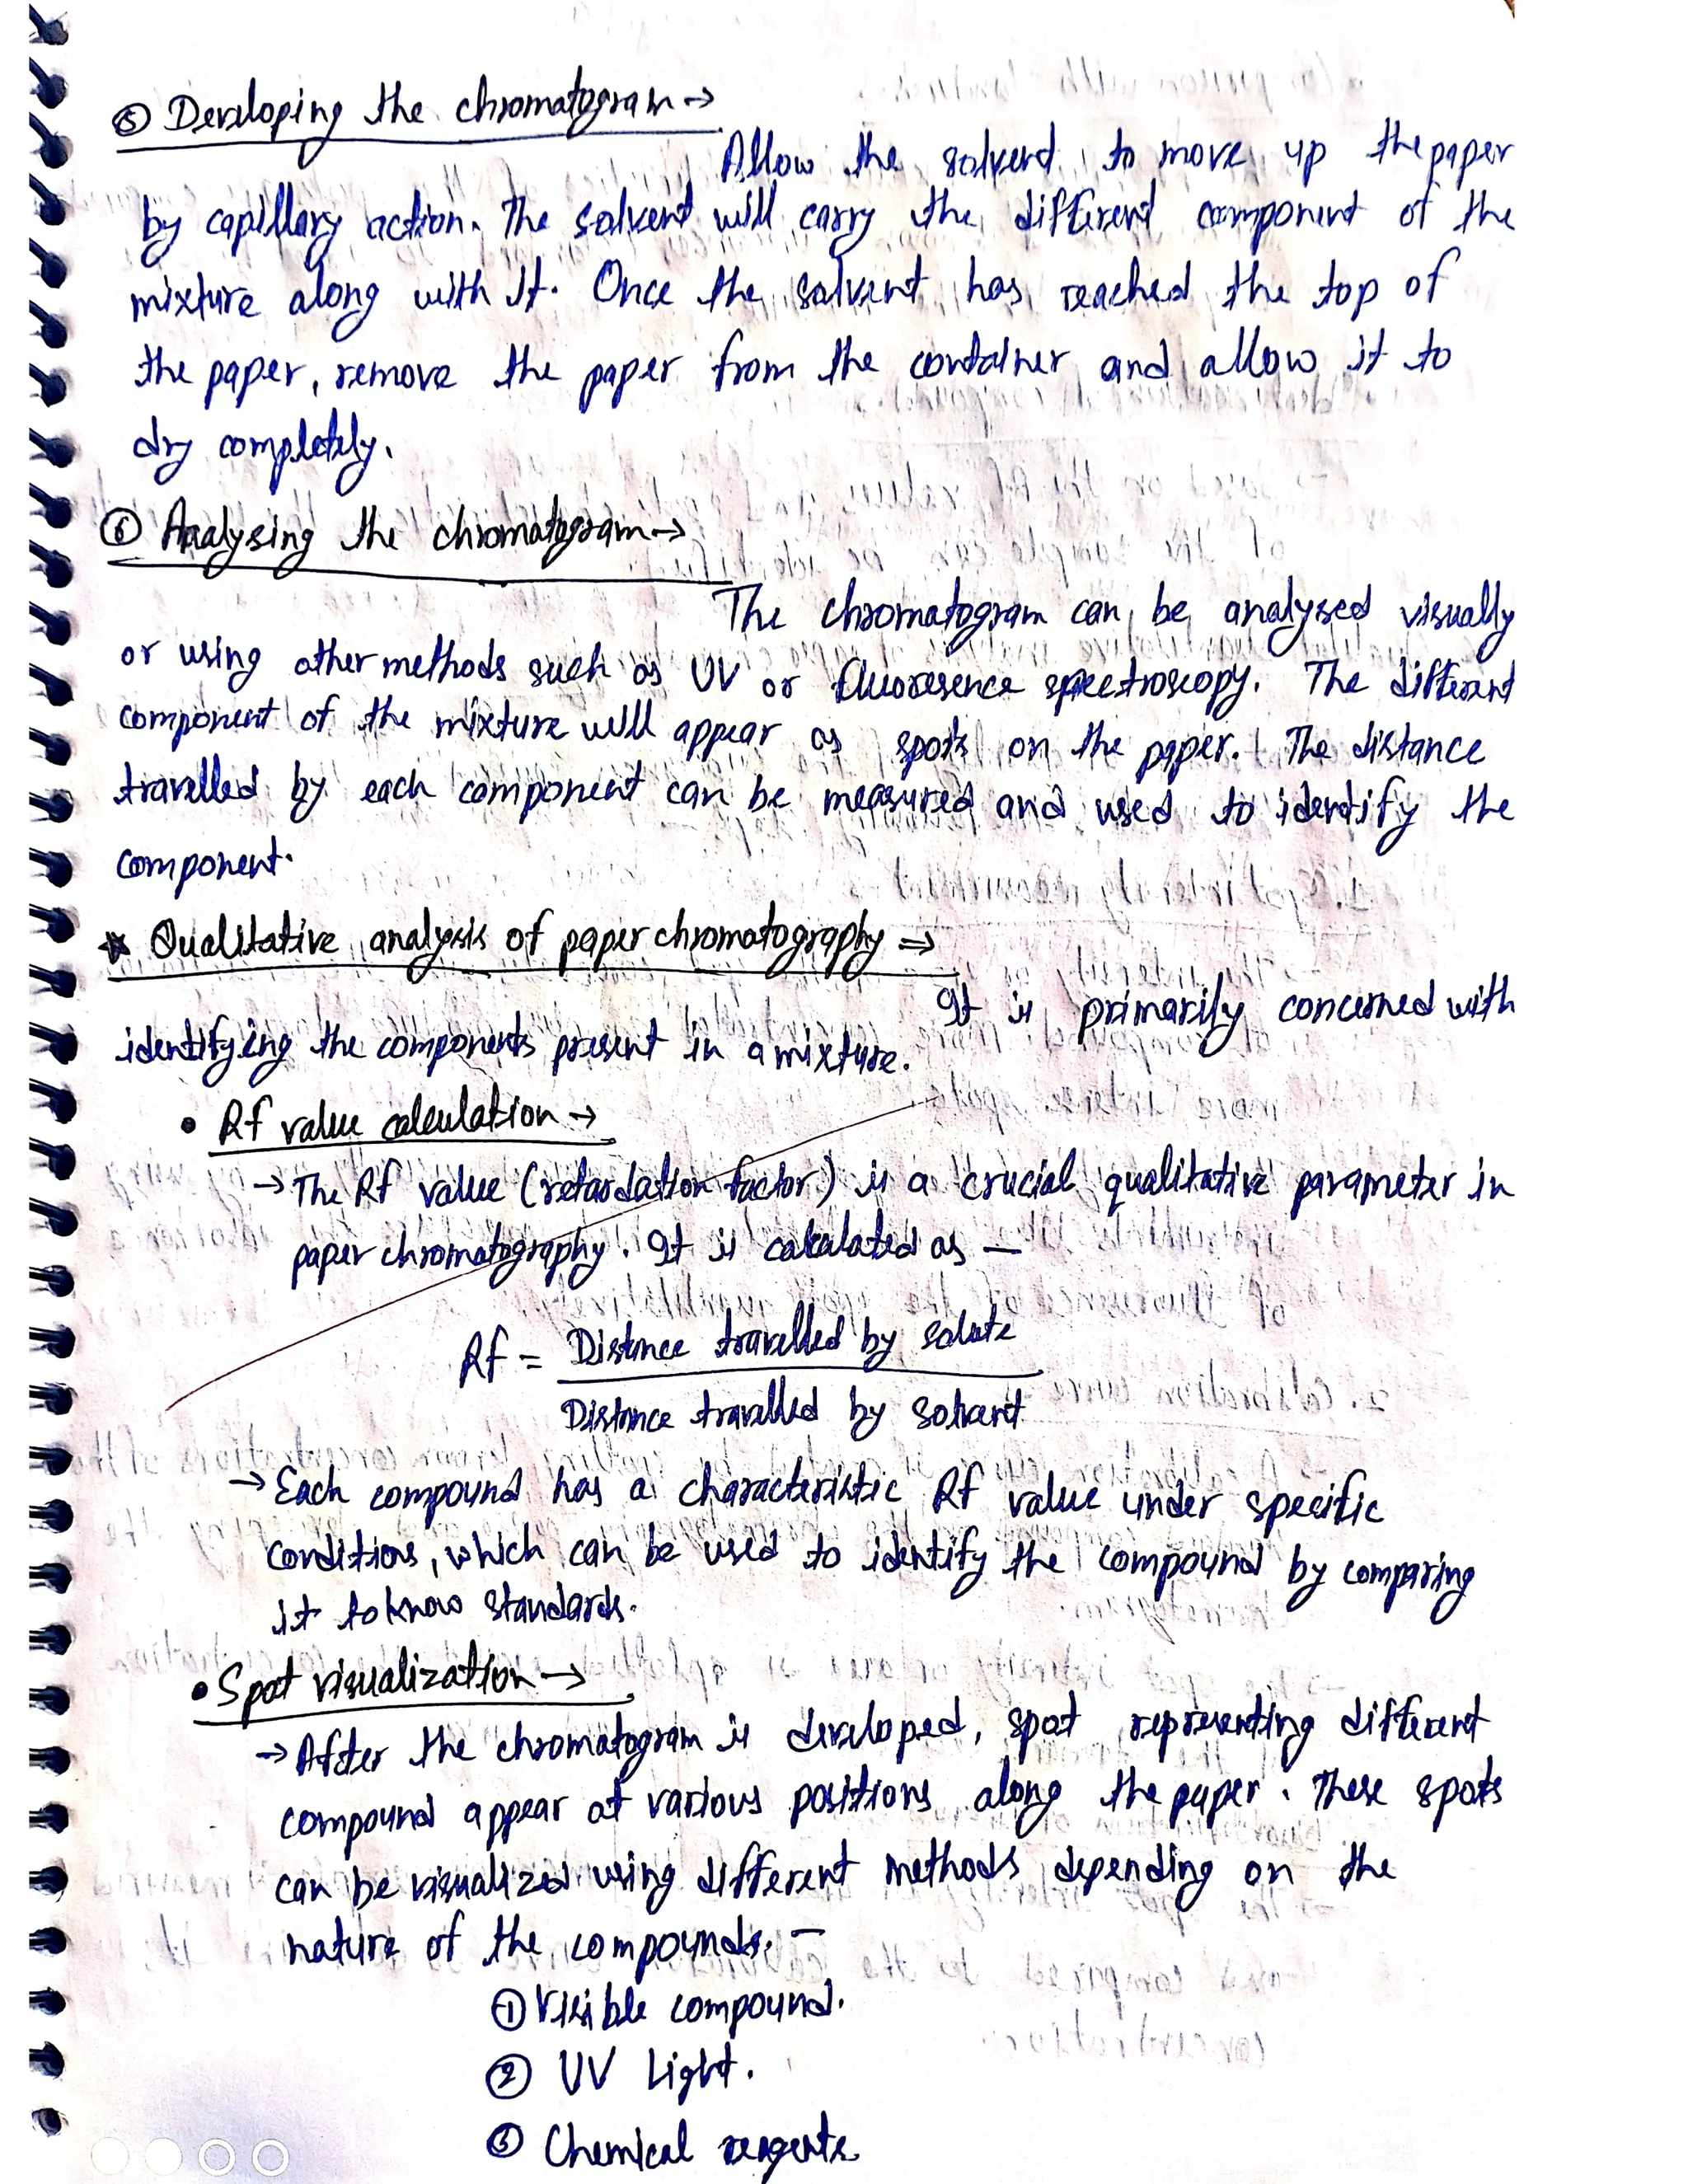 ⑤ Developing the chromatogram →
Allow the solvend to move up the paper
by capillary action. The solvent will carry the different component of the
mixture along with It. Once the solvent has reached the top of
the paper, remove the paper from the container and allow it to
dry completely.
⑥ Analysing the chromatogram →
The chromatogram can be analysed visually
or using other methods such as UV or fluoresence spectroscopy. The different
component of the mixture will appear as spots on the paper. The distance
travelled by each component can be measured and used to identify the
component.
* Qualitative analysis of paper chromatography ⇒
It is primarily concerned with
identifying the components present in a mixture.
• Rf value calculation →
→ The Rf value (retardation factor) is a crucial qualitative parameter in
paper chromatography. It is calculated as —
Rf = Distance travelled by solute
Distance travelled by solvent
→ Each compound has a characteristic Rf value under specific
conditions, which can be used to identify the compound by comparing
it to know standards.
• Spot visualization →
→ After the chromatogram is developed, spot representing different
compound appear at various positions along the paper. These spots
can be visualized using different methods depending on the
nature of the compounds. —
① Visible compound.
② UV Light.
③ Chemical reagents